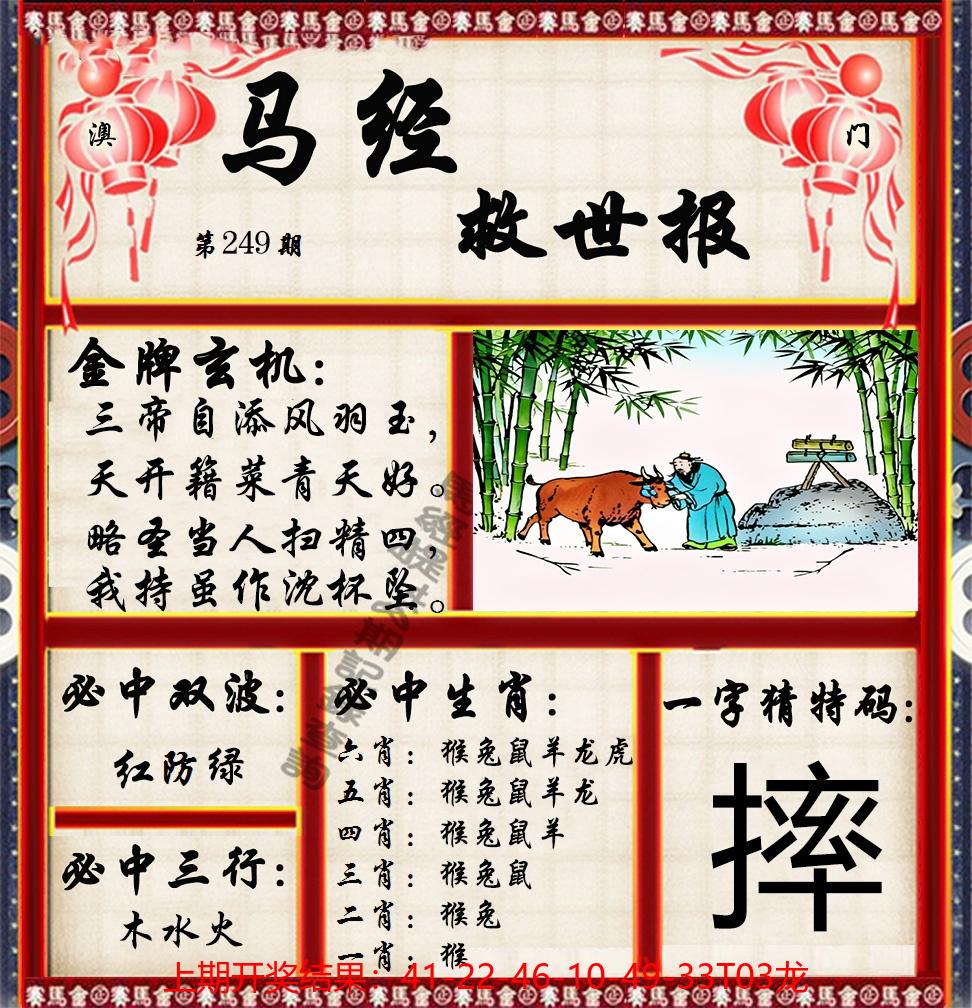 澳
门
马经
救世报
第249期
金牌玄机：
三帝自添风羽玉，
天开籍菜青天好。
略圣当人扫精四，
我持虽作沈杯坠。
必中双波：
红防绿
必中三行：
木水火
必中生肖：
六肖：猴兔鼠羊龙虎
五肖：猴兔鼠羊龙
四肖：猴兔鼠羊
三肖：猴兔鼠
二肖：猴兔
一肖：猴
一字猜特码：
摔
上期开奖结果：41-22-46-10-49-33T03龙